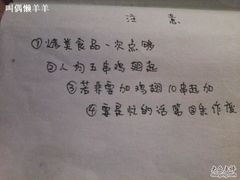 叫偶懒羊羊
注意
①烤类食品一次点够
②人均五串鸡翅起
③若非要加鸡翅10串起加
④要是忙的话第③条作废